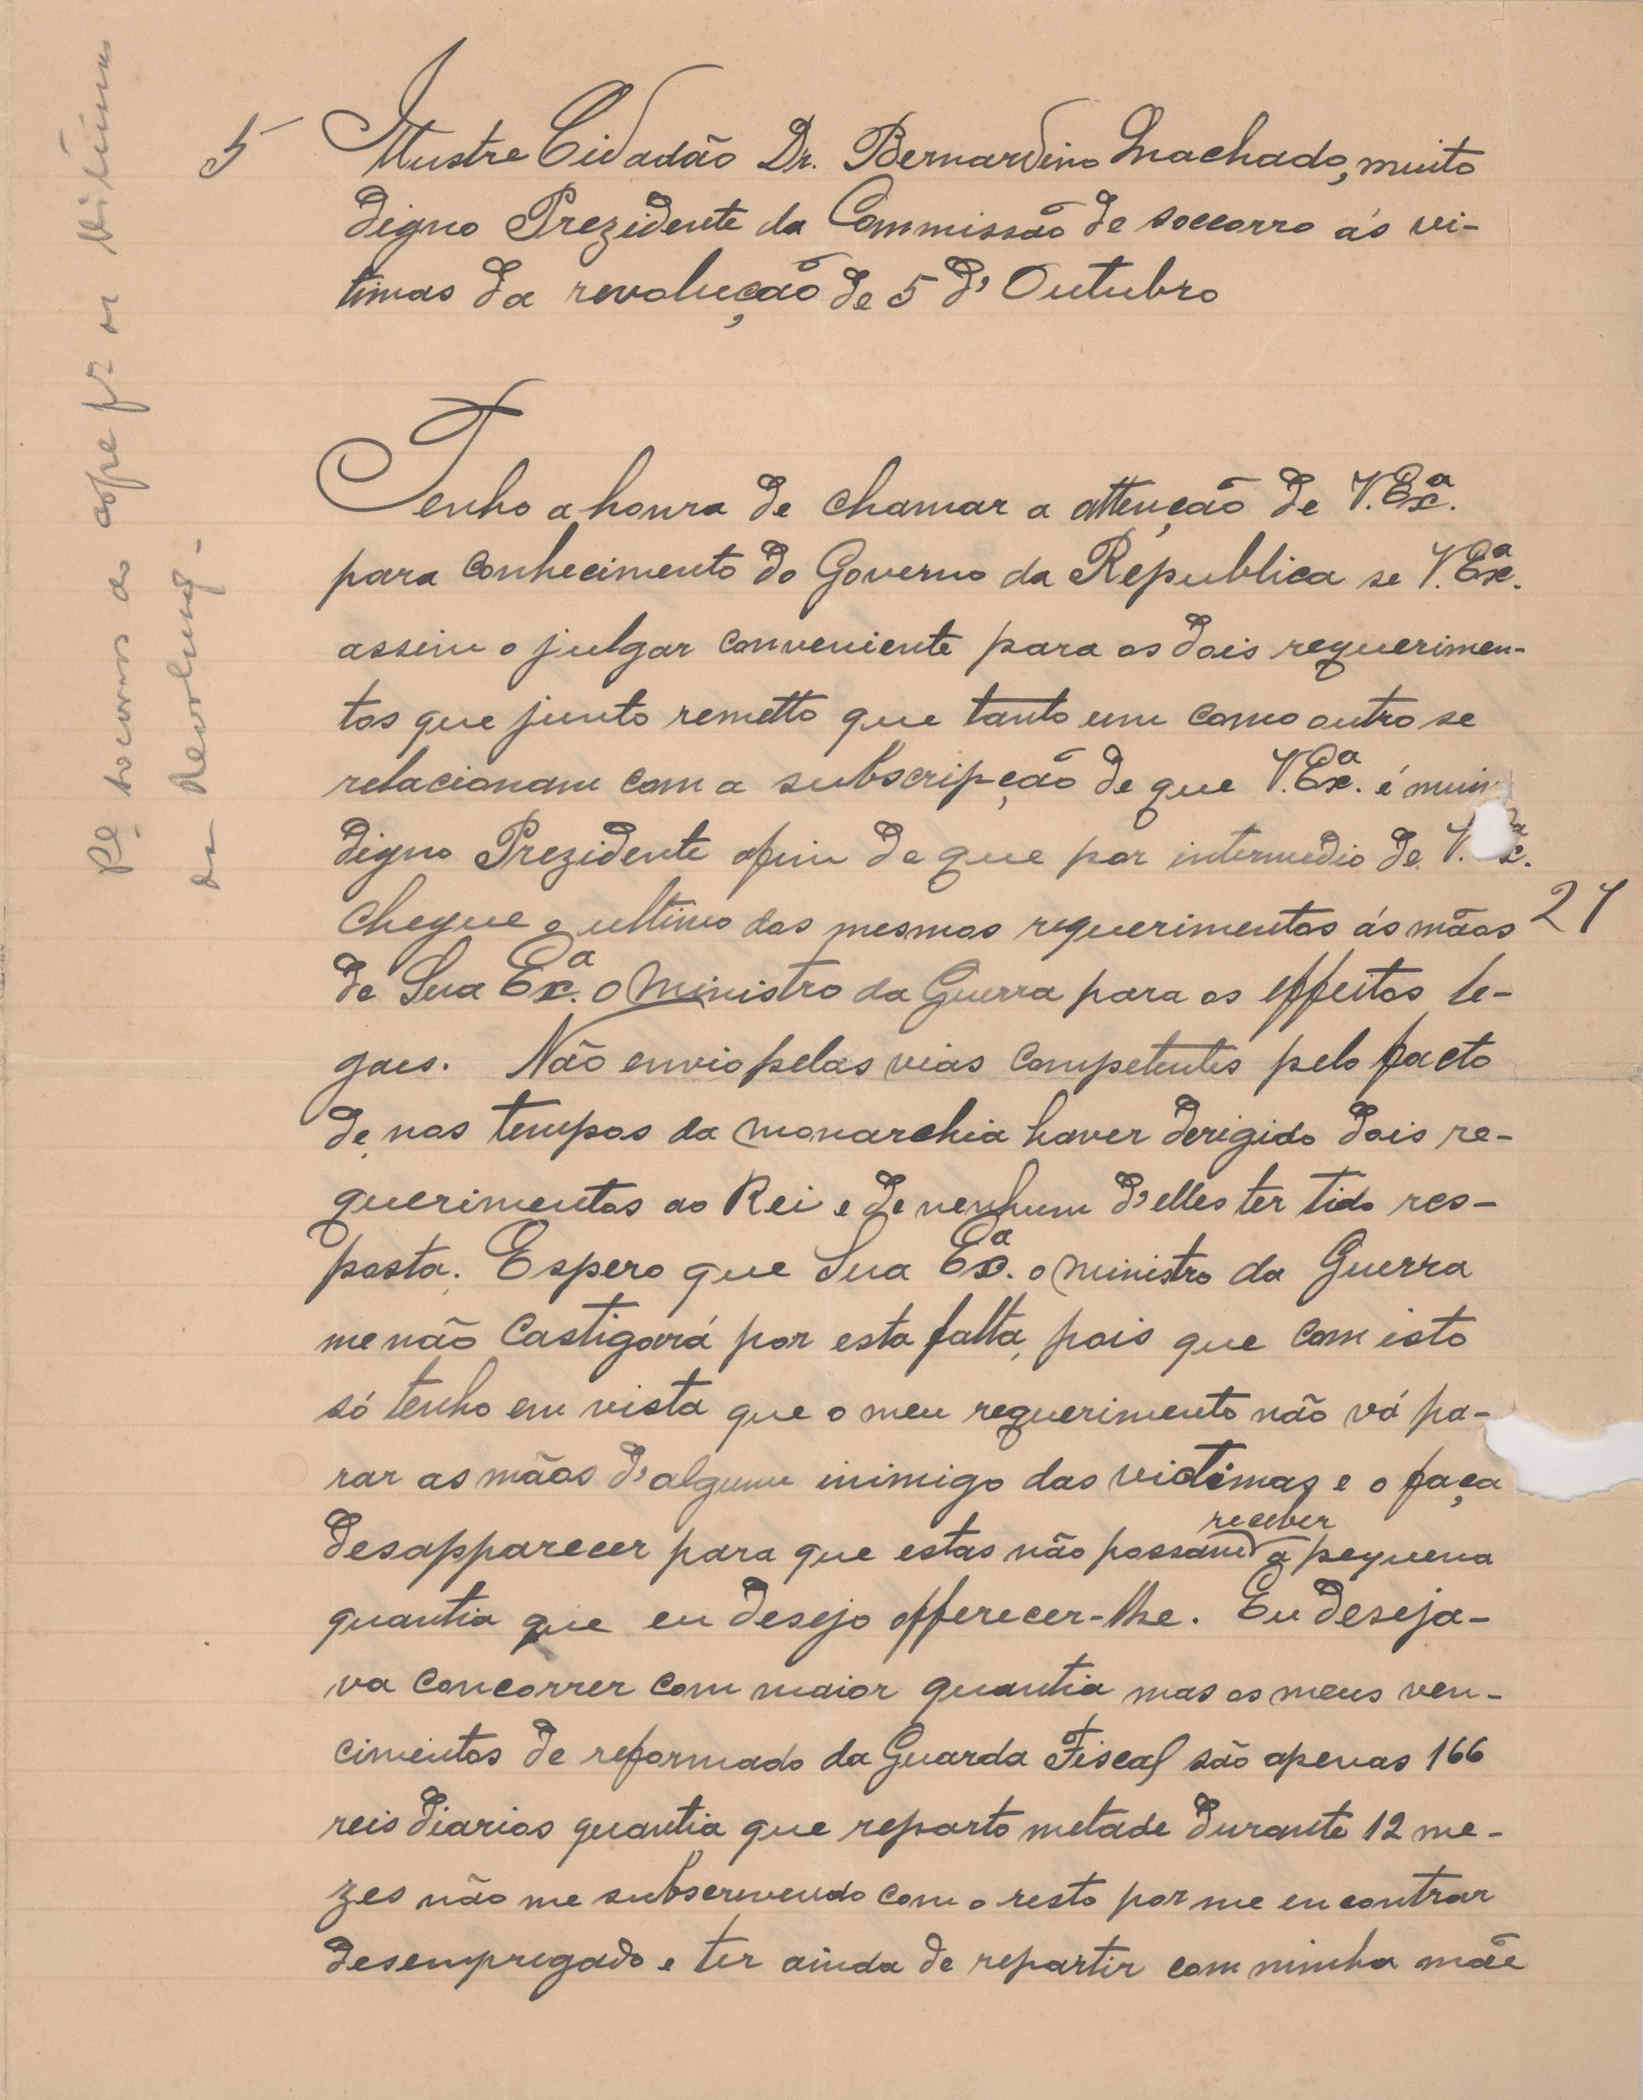 5
Illustre Cidadão Dr. Bernardino Machado, muito
digno Prezidente da Commissão de soccorro ás vi-
timas da revolução de 5 d'Outubro
Tenho a honra de chamar a attenção de V. Exª.
para conhecimento do Governo da Républica se V. Exª.
assim o julgar conveniente para os dois requerimen-
tos que junto remetto que tanto um como outro se
relacionam com a subscripção de que V. Exª. é mui
digno Prezidente afim de que por intermedio de V.
chegue o ultimo dos mesmos requerimentos ás mãos
27
de Sua Exª. o Ministro da Guerra para os effeitos le-
gaes. Não envio pelas vias competentes pelo facto
de, nos tempos da monarchia haver derigido dois re-
querimentos ao Rei e de nenhum d'elles ter tido res-
posta. Espero que Sua Exª. o Ministro da Guerra
me não castigará por esta falta, pois que com isto
só tenho em vista que o meu requerimento não vá pa-
rar as mãos d'algum inimigo das victimas e o faça
desapparecer para que estas não possam receber a pequena
quantia que eu desejo offerecer-lhe. Eu deseja-
va concorrer com maior quantia mas os meus ven-
cimentos de reformado da Guarda Fiscal são apenas 166
reis diarios quantia que reparto metade durante 12 me-
zes não me subscrevendo com o resto por me encontrar
desempregado e ter ainda de repartir com minha mãe